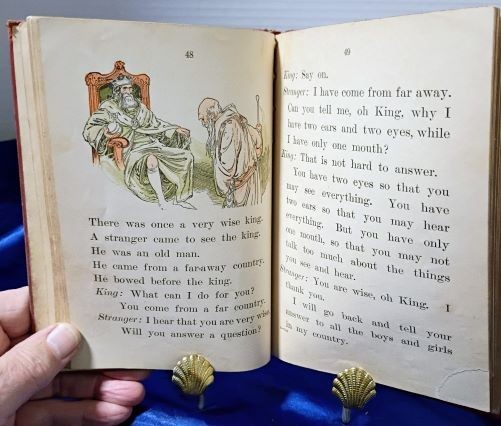 48
There was once a very wise king.
A stranger came to see the king.
He was an old man.
He came from a far-away country.
He bowed before the king.
King: What can I do for you?
You come from a far country.
Stranger: I hear that you are very wise.
Will you answer a question?
49
King: Say on.
Stranger: I have come from far away.
Can you tell me, oh King, why I
have two ears and two eyes, while
I have only one mouth?
King: That is not hard to answer.
You have two eyes so that you
may see everything. You have
two ears so that you may hear
everything. But you have only
one mouth, so that you may not
talk too much about the things
you see and hear.
Stranger: You are wise, oh King. I
thank you.
I will go back and tell your
answer to all the boys and girls
in my country.